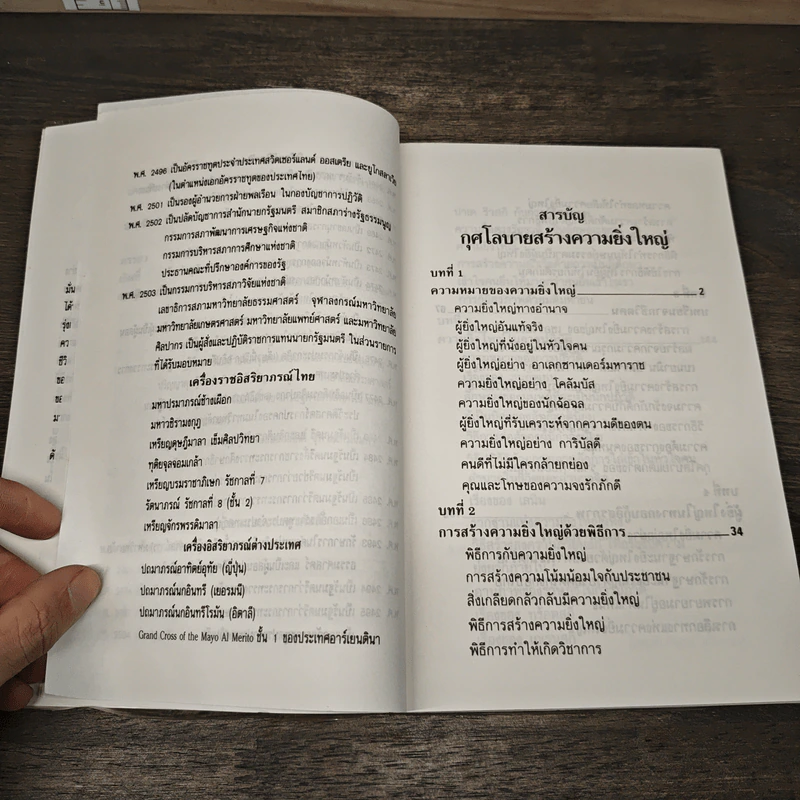 พ.ศ. 2496 เป็นอัครราชทูตประจำประเทศสวิตเซอร์แลนด์ ออสเตรีย และยูโกสลาเวีย
(ในตำแหน่งเอกอัครราชทูตของประเทศไทย)
พ.ศ. 2501 เป็นรองผู้อำนวยการฝ่ายพลเรือน ในกองบัญชาการปฏิวัติ
พ.ศ. 2502 เป็นปลัดบัญชาการสำนักนายกรัฐมนตรี สมาชิกสภาร่างรัฐธรรมนูญ
กรรมการสภาพัฒนาการเศรษฐกิจแห่งชาติ
กรรมการบริหารสภาการศึกษาแห่งชาติ
ประธานคณะที่ปรึกษาองค์การของรัฐ
พ.ศ. 2503 เป็นกรรมการบริหารสภาวิจัยแห่งชาติ
เลขาธิการสภามหาวิทยาลัยธรรมศาสตร์ จุฬาลงกรณ์มหาวิทยาลัย
มหาวิทยาลัยเกษตรศาสตร์ มหาวิทยาลัยแพทย์ศาสตร์ และมหาวิทยาลัย
ศิลปากร เป็นผู้สั่งและปฏิบัติราชการแทนนายกรัฐมนตรี ในส่วนราชการ
ที่ได้รับมอบหมาย
เครื่องราชอิสริยาภรณ์ไทย
มหาปรมาภรณ์ช้างเผือก
มหาวชิรามงกุฎ
เหรียญดุษฎีมาลา เข็มศิลปวิทยา
ทุติยจุลจอมเกล้า
เหรียญบรมราชาภิเษก รัชกาลที่ 7
รัตนาภรณ์ รัชกาลที่ 8 (ชั้น 2)
เหรียญจักรพรรดิมาลา
เครื่องอิสริยาภรณ์ต่างประเทศ
ปถมาภรณ์อาทิตย์อุทัย (ญี่ปุ่น)
ปถมาภรณ์นกอินทรี (เยอรมนี)
ปถมาภรณ์นกอินทรีโรมัน (อิตาลี)
Grand Cross of the Mayo Al Merito ชั้น 1 ของประเทศอาร์เยนตินา
สารบัญ
กุศโลบายสร้างความยิ่งใหญ่
บทที่ 1
ความหมายของความยิ่งใหญ่ 2
ความยิ่งใหญ่ทางอำนาจ
ผู้ยิ่งใหญ่อันแท้จริง
ผู้ยิ่งใหญ่ที่นั่งอยู่ในหัวใจคน
ผู้ยิ่งใหญ่อย่าง อาเลกซานเดอร์มหาราช
ความยิ่งใหญ่อย่าง โคลัมบัส
ความยิ่งใหญ่ของนักฉ้อฉล
ผู้ยิ่งใหญ่ที่รับเคราะห์จากความดีของตน
ความยิ่งใหญ่อย่าง การิบัลดี
คนดีที่ไม่มีใครกล้ายกย่อง
คุณและโทษของความจงรักภักดี
บทที่ 2
การสร้างความยิ่งใหญ่ด้วยพิธีการ 34
พิธีการกับความยิ่งใหญ่
การสร้างความโน้มน้อมใจกับประชาชน
สิ่งเกลียดกลัวกลับมีความยิ่งใหญ่
พิธีการสร้างความยิ่งใหญ่
พิธีการทำให้เกิดวิชาการ